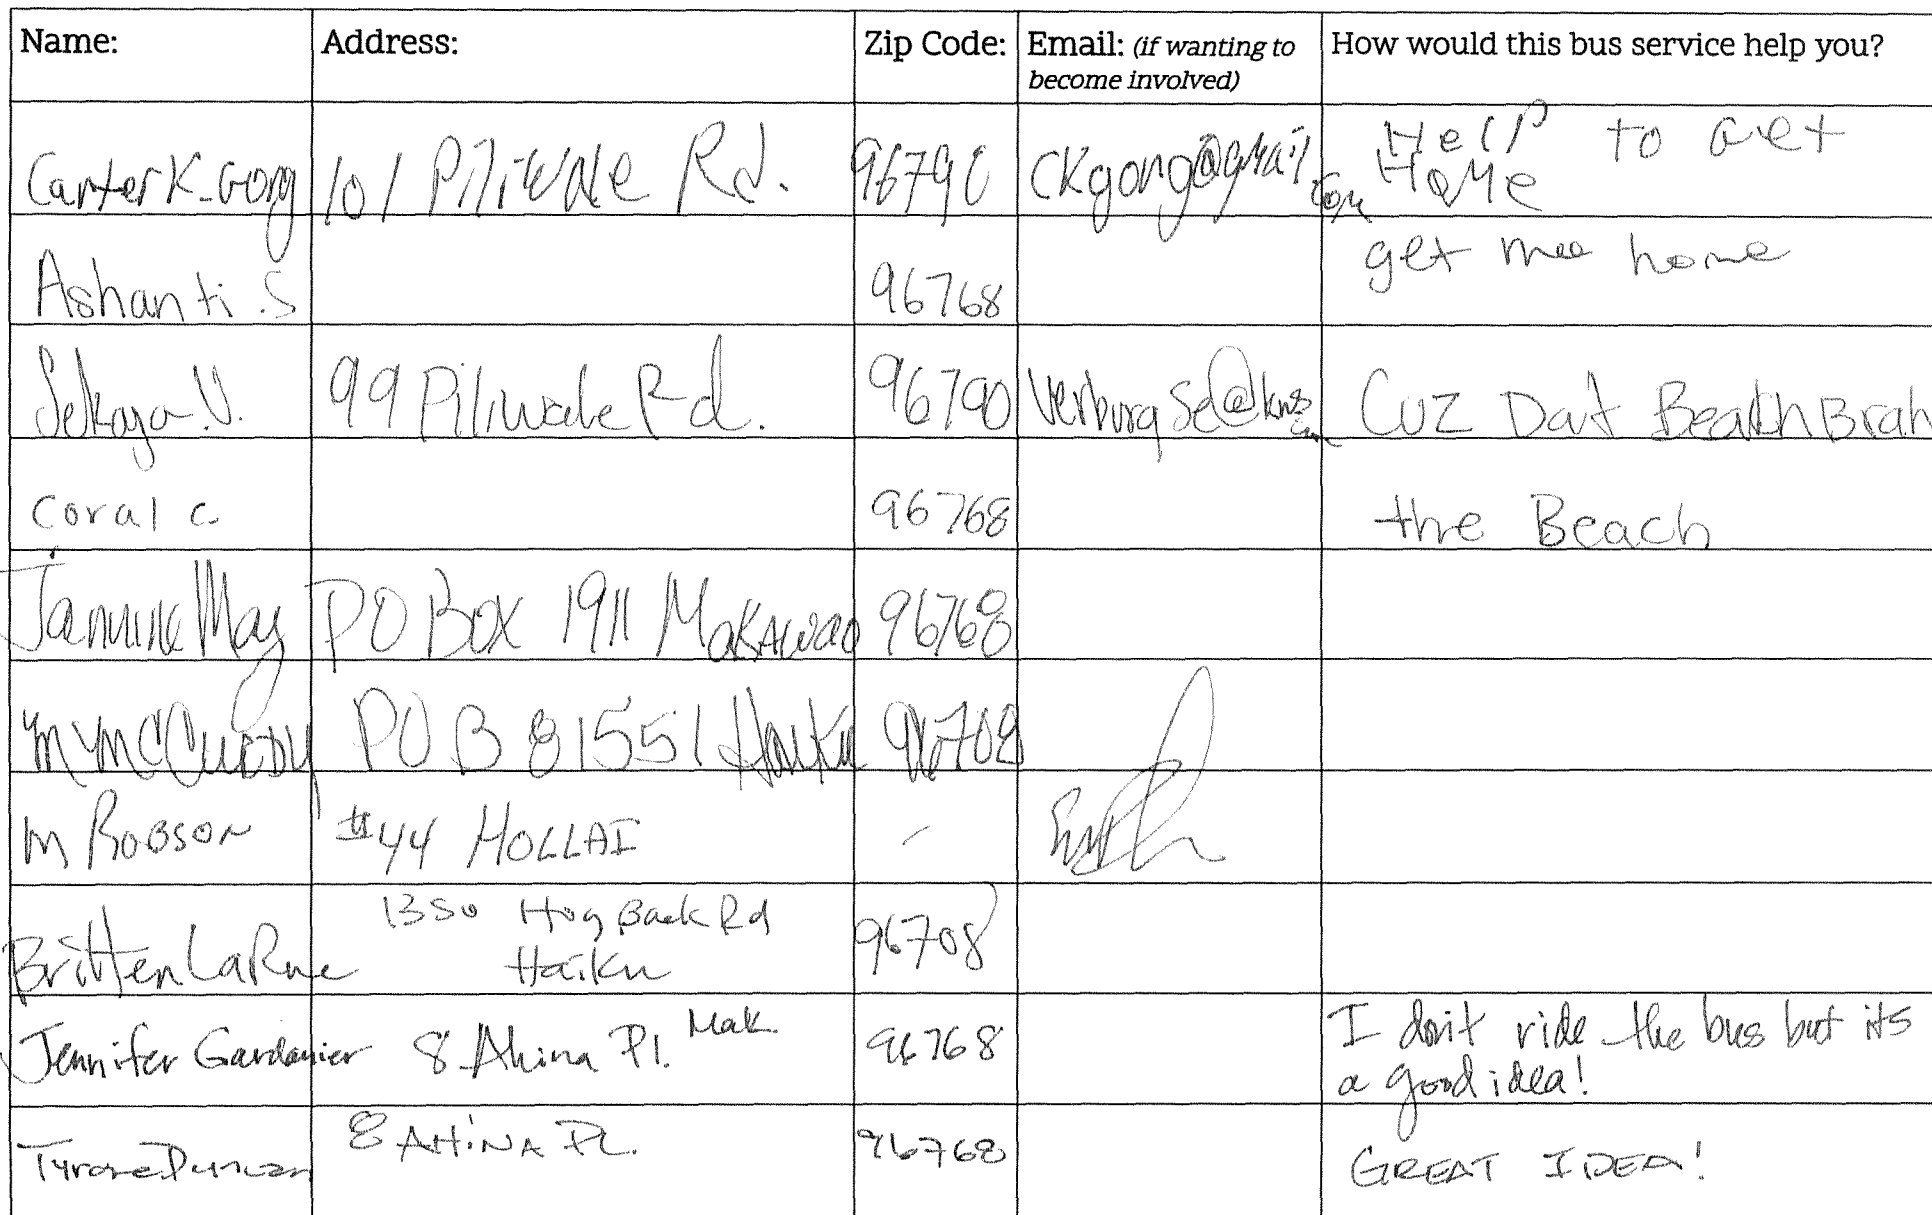 Name: Address: Zip Code: Email: (if wanting to become involved) How would this bus service help you?
Carter K. Gong 101 Piliwale Rd. 96790 CKgong@gmail.com Help to Get Home
Ashanti .S 96768 get mee home
V. 99 Piliwale Rd. 96790 Cuz Dat Beach Brah
Coral c. 96768 the Beach
May PO Box 1911 Makawao 96768
M McCurdy PO B 81551 Haiku 96708
M Robson #44 HOLLAI -
Britten LaRue 1350 Hog Back Rd Haiku 96708
Jennifer Gardanier 8 Ahina Pl. Mak. 96768 I don't ride the bus but its a good idea!
Tyrone Duncan 8 AHiNA PL. 96768 GREAT IDEA!